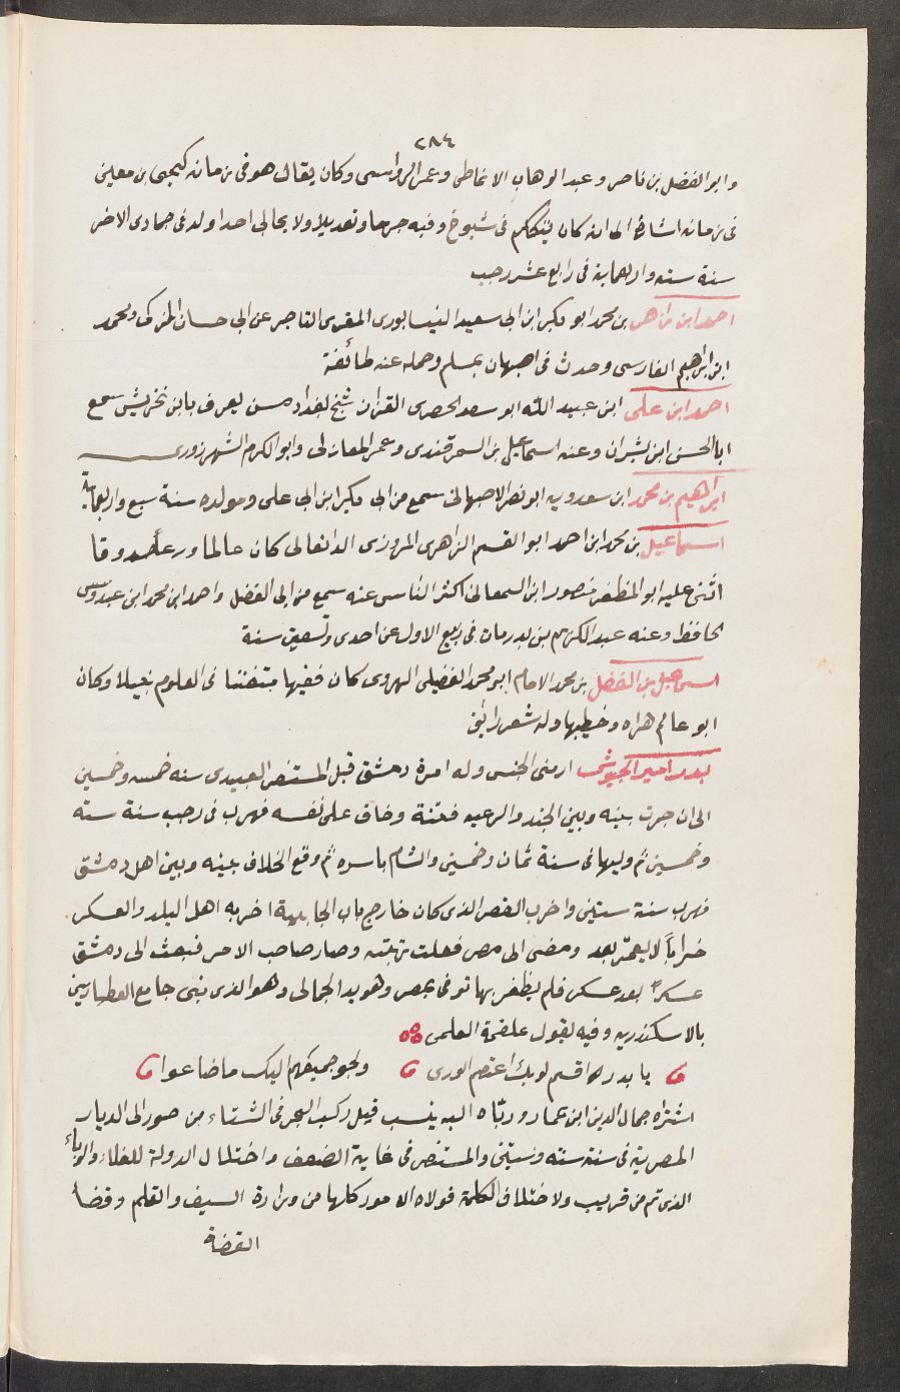 ٢٨٤
وابو الفضل بن ناصر وعبد الوهاب الانماطى وعمر الرواسى وكان يقال هو فى زمانه كيحيى بن معين
فى زمانه اشارة الى انه كان يتكلم فى شيوخ وفيه جرحا وتعديلا ولا يحابى احدا ولد فى جمادى الاخر
سنة سته واربعماية فى رابع عشر رجب
احمد ابن زاهر بن محمد ابو بكر ابن ابى سعيد النيسابورى المقرى التاجر عن ابى حسان المزكى ومحمد
ابن ابراهيم الفارسى وحدث فى اصبهان بمسلم وحمله عنه طائفة
احمد ابن على ابن عبيد الله ابو سعد الحصرى القزاز شيخ بغداد مسن يعرف بابن نخريش سمع
ابا الحسن ابن بشران وعنه اسماعيل بن السمرقندى وعمر المغازلى وابو الكرم الشهرزورى
ابراهيم بن محمد ابن سعدويه ابو نصر الاصبهانى سمع من ابى بكر ابن ابى على ومولده سنة سبع واربعماية
اسماعيل بن محمد ابن احمد ابو القسم الزاهرى المروزى الدانغالى كان عالما ورعا صدوقا
اثنى عليه ابو المظفر منصور ابن السمعانى اكثر الناس عنه سمع من ابى الفضل واحمد ابن محمد ابن عبدوس
لحافظ وعنه عبد الكريم بن بدر مات فى ربيع الاول عن احدى وتسعين سنة
اسماعيل بن الفضل بن محمد الامام ابو محمد الفضيلى الهروى كان فقيها متفننا فى العلوم نبيلا وكان
ابو عالم هراه وخطيبها وله شعر رائق
بدر امير الجيوش ارمنى الجنس وله امرة دمشق قبل المستنصر العبيدى سنه خمسه وخمسين
الى ان جرت بينه وبين الجند والرعيه فتنة وخاف على نفسه فهرب فى رجب سنة سته
وخمسين ثم وليها فى سنة ثمان وخمسين والشام باسره ثم وقع الخلاف بينه وبين اهل دمشق
فهرب سنة ستين واخرب القصر الذى كان خارج باب الجابية اخربه اهل البلد والعسكر
خرابا لا يعمر بعد ومضى الى مصر فعلت رتبته وصار صاحب الامر فبعث الى دمشق
عسكرا بعد عسكر فلم يظفر بها توفى بمصر وهو بدر الجمالى وهو الذى بنى جامع العطارين
بالاسكندريه وفيه يقول علقمة العلمى
يا بدر اقسم لو بك اعتصم الورى ولجو جميعهم اليك ما ضاعوا
اشتراه جمال الدين ابن عمار ورباه اليه ينسب قيل ركب البحر فى الشتاء من صور الى الديار
المصرية فى سنة سته وستين والمستنصر فى غاية الضعف واختلال الدولة للغلاء والوباء
الذى تم من قريب ولاختلاف الكلمة فولاه الامور كلها من وزارة السيف والقلم وقضا
القضاة